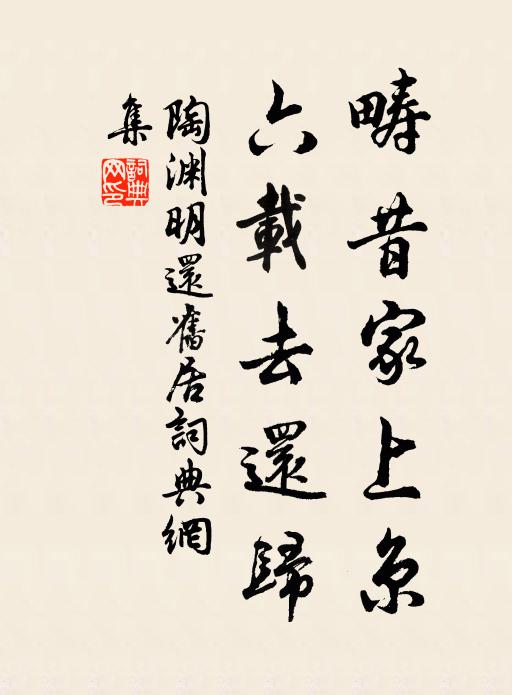 疇昔家上京
六載去還歸
陶淵明還舊居詞典網
集
詞典
网印